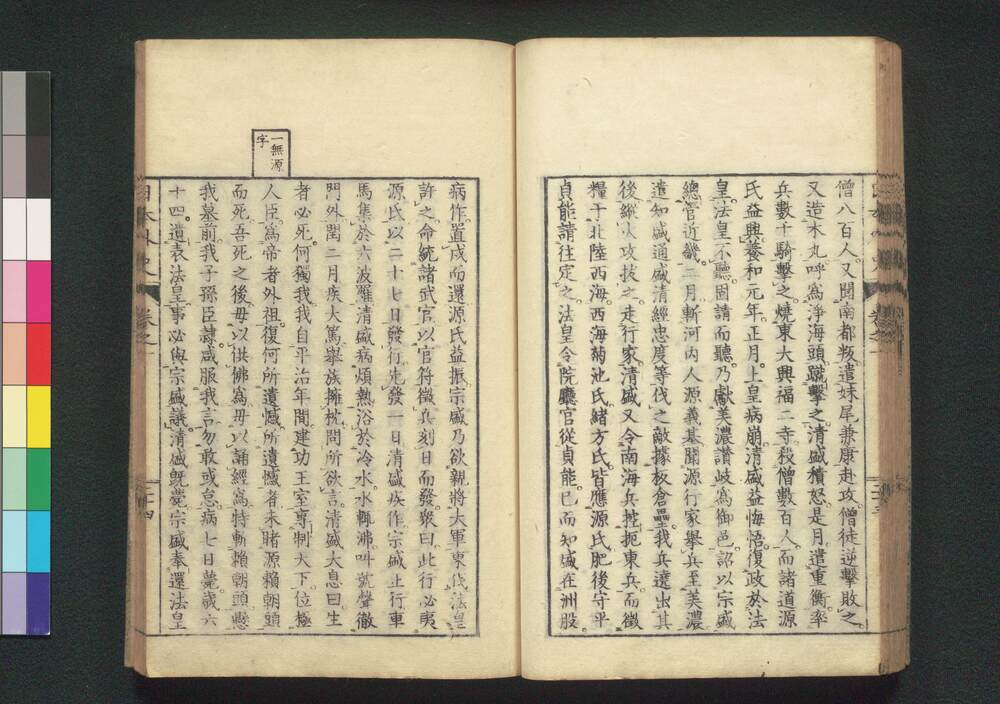 僧八百人。又聞南都叛。遣妹尾兼康赴攻。僧徒逆擊敗之。
又造木丸。呼為淨海頭。蹴擊之。清盛積怒。是月。遣重衡率
兵數千騎擊之。燒東大興福二寺。殺僧數百人。而諸道源
氏益興。養和元年。正月。上皇病崩。清盛益悔悟。復政於法
皇。法皇不聽。固請而聽。乃獻美濃讚岐為御邑。詔以宗盛
總管近畿。二月。斬河內人源義基。聞源行家舉兵至美濃。
遣知盛通盛清經忠度等伐之。敵據板倉壘。我兵遶出其
後。縱火攻拔之。走行家。清盛又令南海兵挫扼東兵。而徵
糧于北陸西海。西海菊池氏緒方氏。皆應源氏。肥後守平
貞能請往定之。法皇令院廳官從貞能。已而知盛在洲股。
病作。置戍而還。源氏益振。宗盛乃欲親將大軍東伐。法皇
許之。命統諸武官。以官符徵兵。刻日而發。眾曰。此行必夷
源氏。以二十七日發行。先發一日。清盛疾作。宗盛止行。車
馬集於六波羅。清盛病煩熱。浴於冷水。水輒沸。叫號聲徹
門外。閏二月。疾大篤。舉族擁枕。問所欲言。清盛大息曰。生
者必死。何獨我。我自平治年間。建功王室。專制天下。位極
人臣。為帝者外祖。復何所遺憾。所遺憾者。未睹源賴朝頭
而死。吾死之後。毋以供佛為。毋以誦經為。特斬賴朝頭。懸
我墓前。我子孫臣隸。咸服我言。勿敢或怠。病七日薨。歲六
十四。遺表法皇。事必與宗盛議。清盛既薨。宗盛奉還法皇
一無源
字
日本外史 卷之一